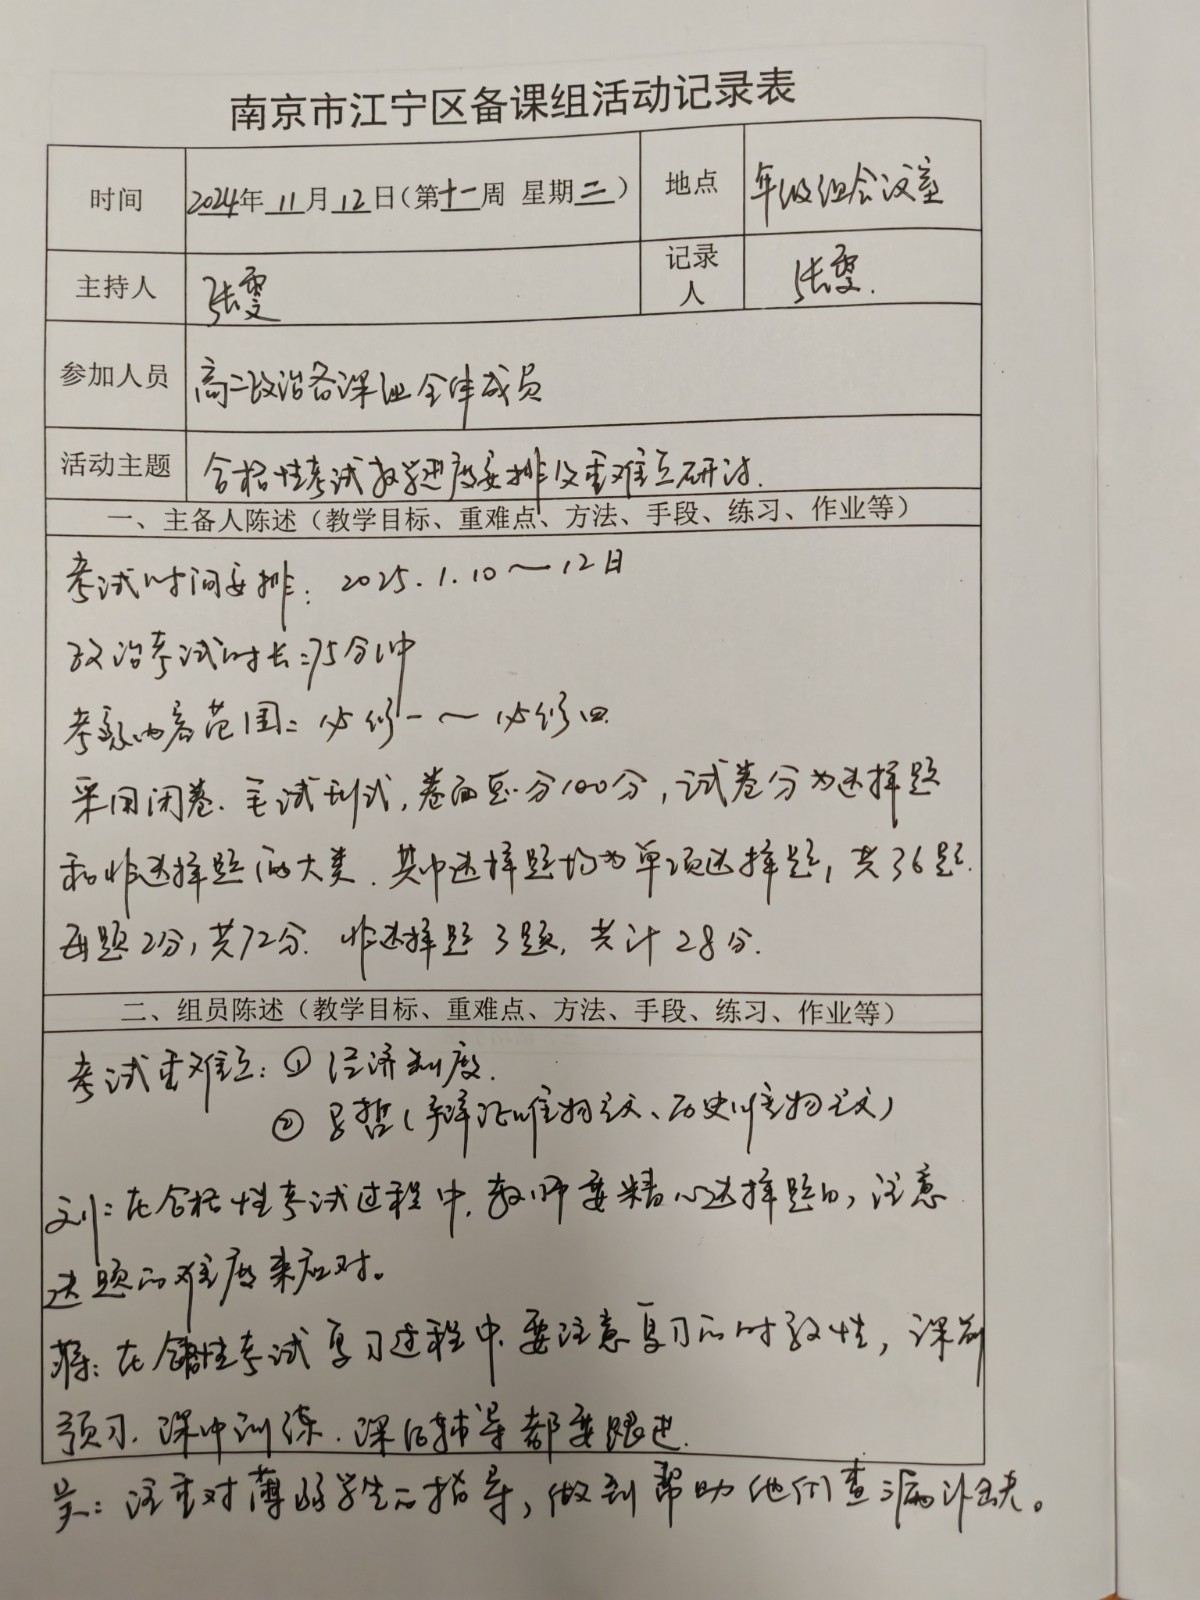 南京市江宁区备课组活动记录表
时间 2024年 11 月 12 日(第十一周 星期二) 地点 年级组会议室
主持人 张雯 记录人 张雯.
参加人员 高二政治备课组全体成员
活动主题 合格性考试教学进度安排及重难点研讨.
一、主备人陈述(教学目标、重难点、方法、手段、练习、作业等)
考试时间安排: 2025.1.10～12日
政治考试时长:75分钟
考察内容范围: 必修一～必修四.
采用闭卷、笔试形式, 卷面总分100分, 试卷分为选择题
和非选择题两大类. 其中选择题均为单项选择题, 共36题.
每题2分, 共72分. 非选择题3题, 共计28分.
二、组员陈述(教学目标、重难点、方法、手段、练习、作业等)
考试重难点: ① 经济制度.
② 马哲(辩证唯物主义、历史唯物主义)
刘: 在合格性考试过程中, 教师要精心选择题目, 注意
选题的难度来应对。
蒋: 在合格性考试复习过程中, 要注意复习的时效性, 课前
预习、课中训练、课后辅导都要跟进.
吴: 注重对薄弱学生的指导, 做到帮助他们查漏补缺。